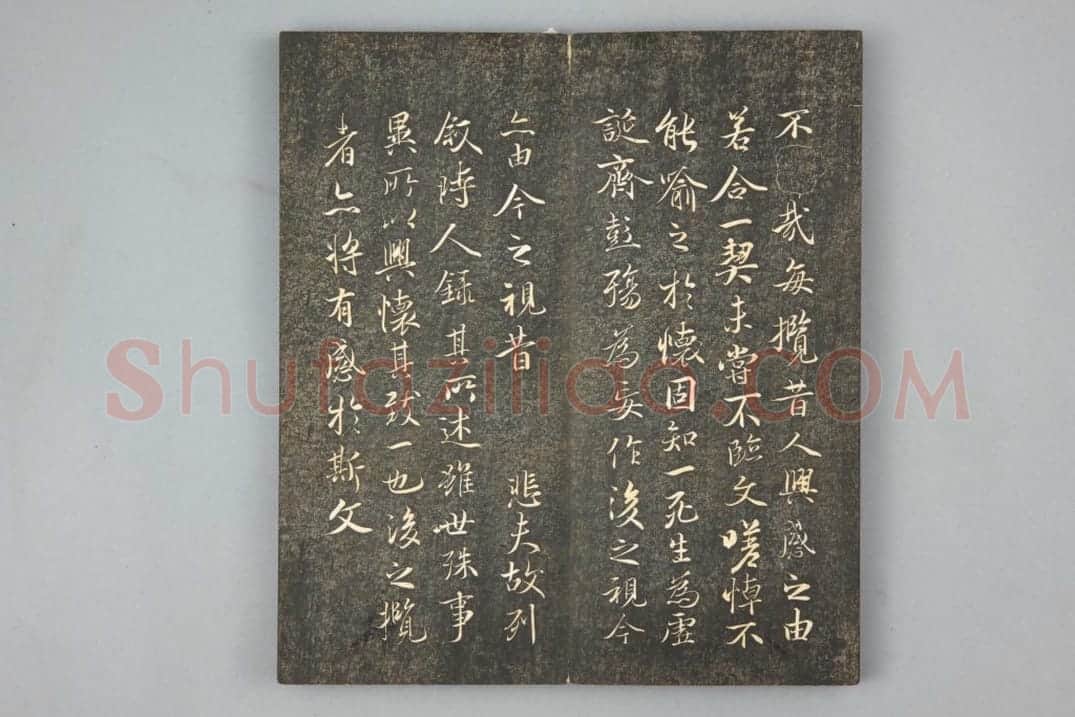 不哉每攬昔人興感之由
若合一契未嘗不臨文嗟悼不
能喻之於懷固知一死生為虛
誕齊彭殤為妄作後之視今
亦由今之視昔 悲夫故列
敘時人錄其所述雖世殊事
異所以興懷其致一也後之攬
者亦將有感於斯文
Shufaziliao.COM